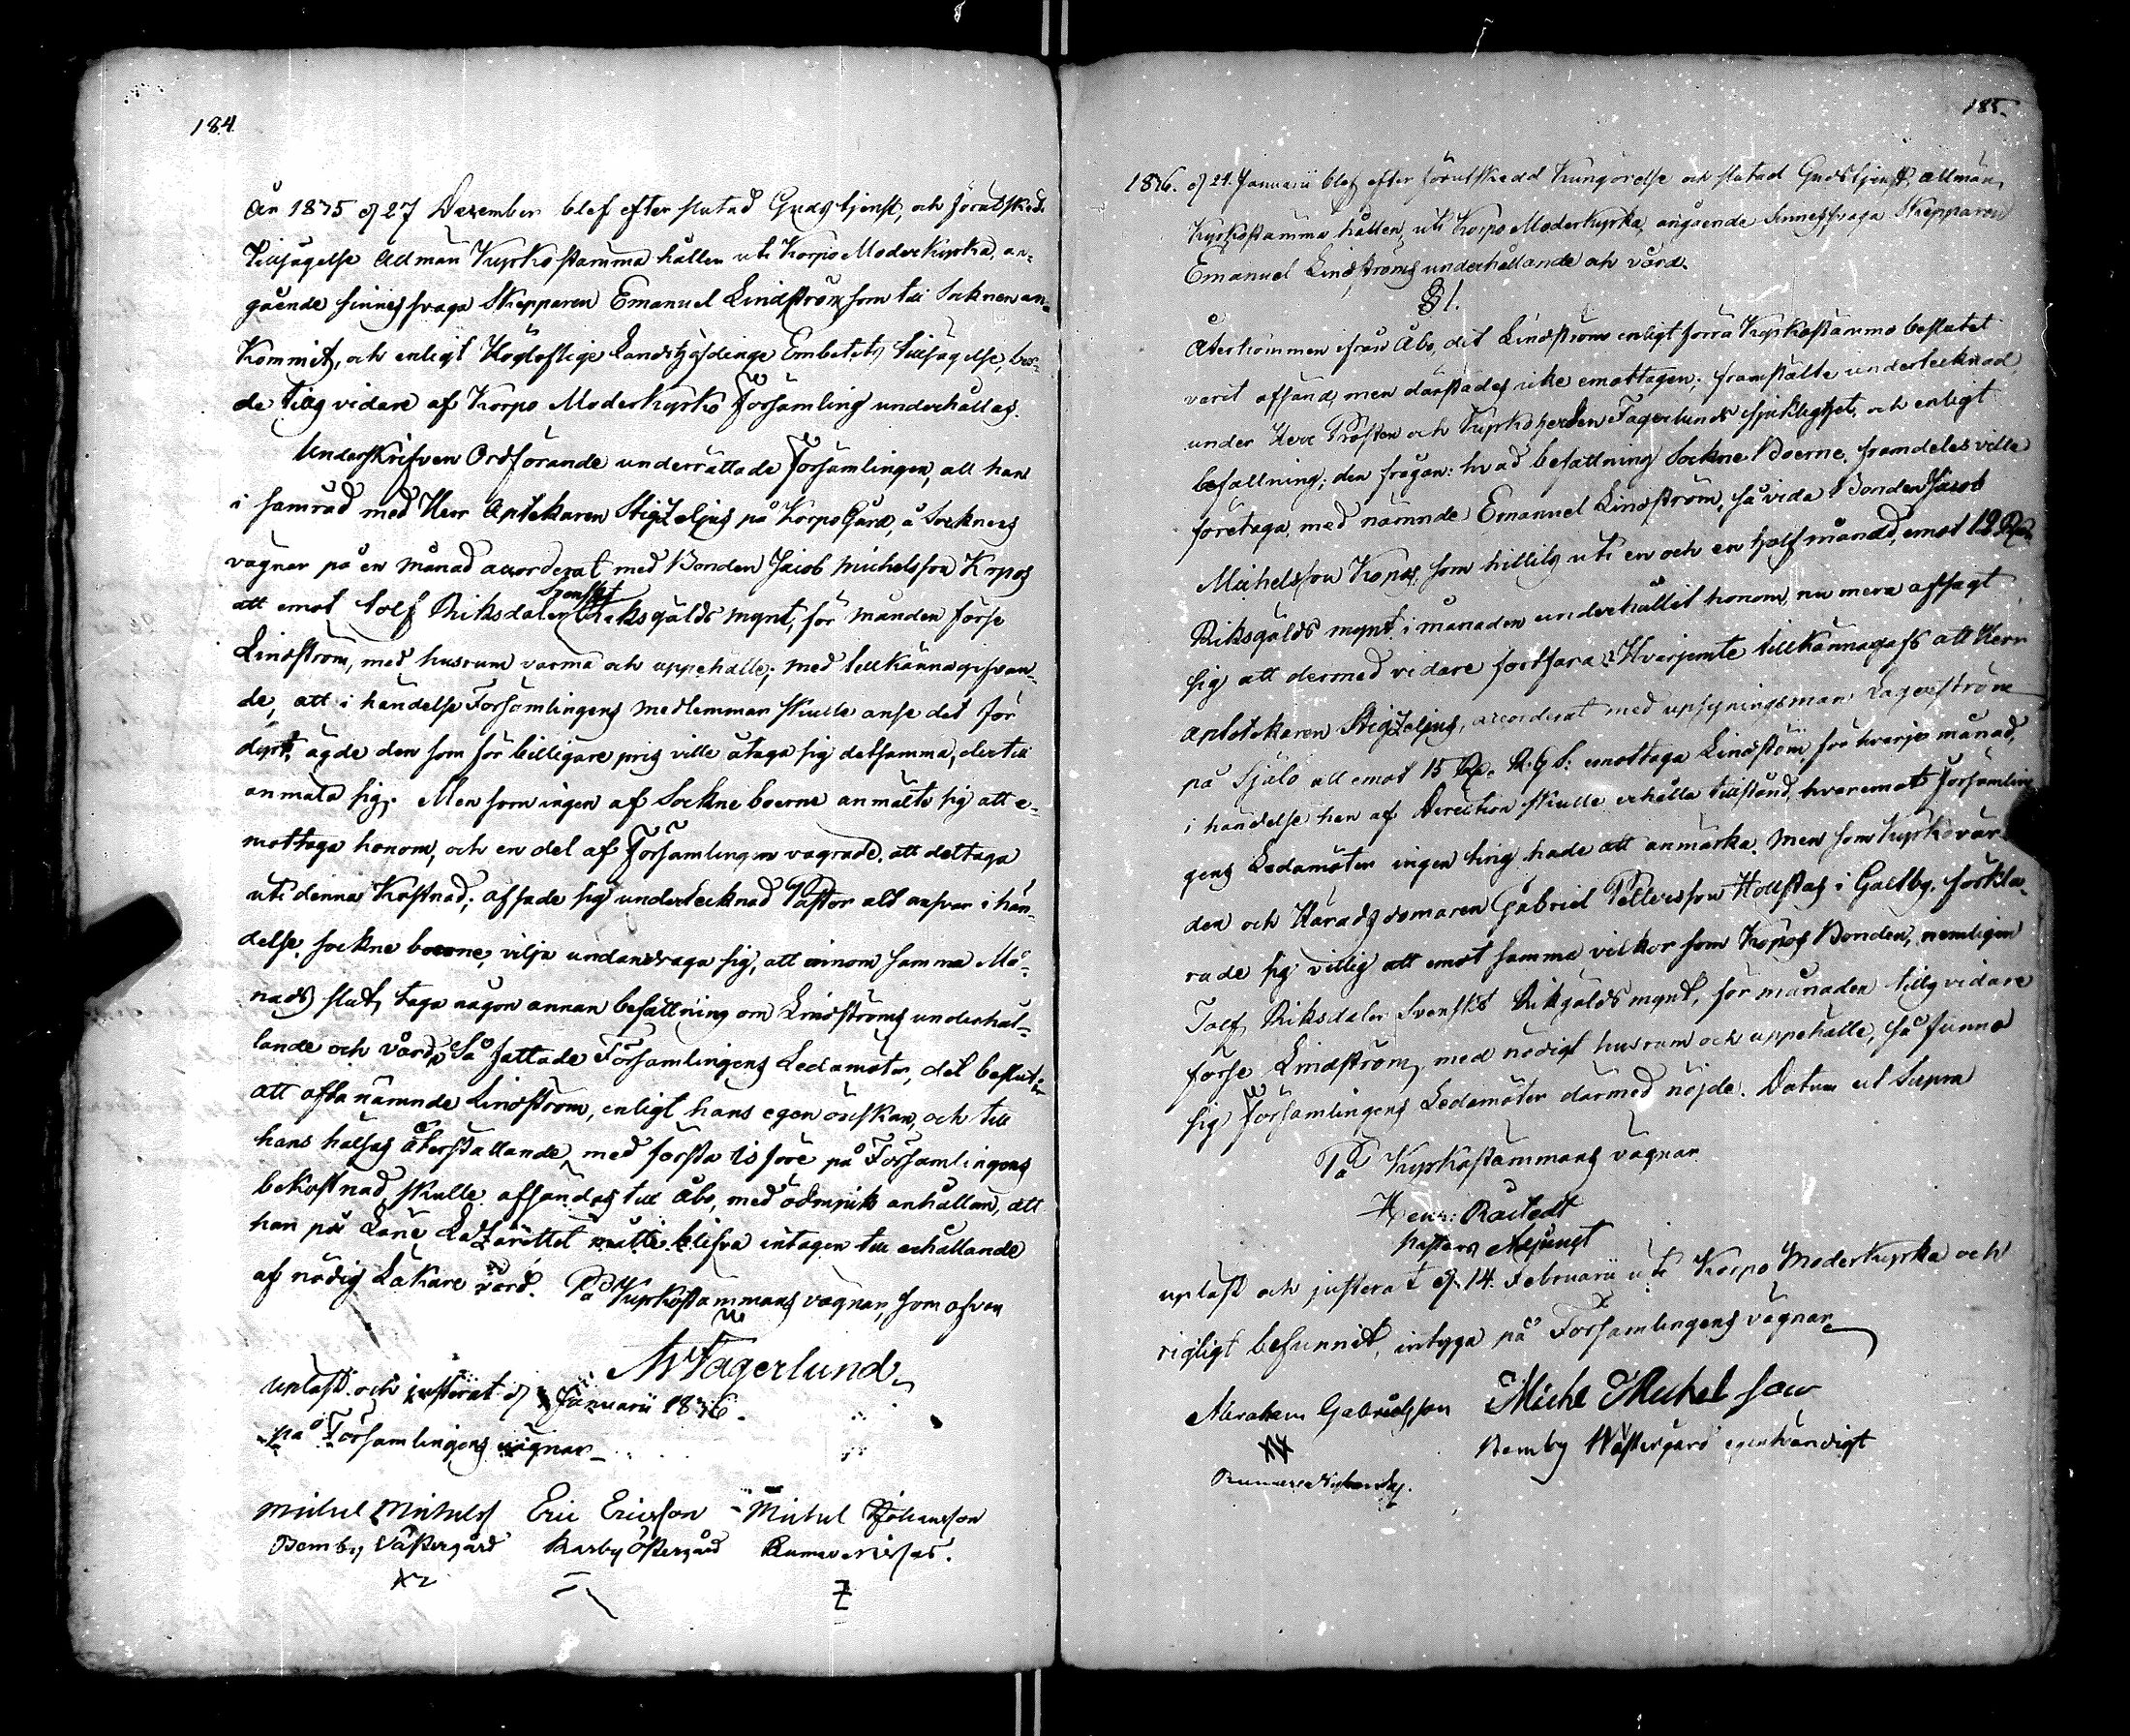 184.
År 1835 d 27 December blef efter slutad Gudstjenst, och förutskedd
Tillsägelse Allmän Kyrkostämma hållen uti Korpo Moderkyrka, an-
gående sinnessvaga Skepparen Emanuel Lindström som till Socknen an-
kommit, och enligt Högloflige Landshöfdinge Embetets tillsägelse, bor-
de tills vidare af Korpo Moderkyrko Församling underhållas.
Underskrifven Ordförande underrättade Församlingen, att han
i samråd med Herr Apotekaren Stigzelius på Korpo Gård, å Socknens
vägnar på en månad accorderat med Bonden Jacob Michelsson Kopos
att emot tolf Riksdaler Svenskt Riksgälds mynt, för månden förse
Lindström, med husrum varma och uppehälle; med tillkännagifvan-
de, att i händelse Församlingens medlemmar skulle anse det för
dyrt, ägde den som för billigare pris ville åtaga sig detsamma, dertill
anmäla sig. Men som ingen af Sockneboerne anmälte sig att e-
mottaga honom, och en del af Församlingen vägrade, att deltaga
uti denna kostnad; afsade sig undertecknad Pastor allt ansvar i hän-
delse, sockne boerne, vilja undandraga sig, att innom samma Må-
nads slut, taga någon annan befattning om Lindströms underhål-
lande och vård. Så fattade Församlingens Ledamöter, det beslut:
att ofta nämnde Lindström, enligt hans egen önskan, och till
hans hälsas återställande, med första is före på Församlingens
bekostnad, skulle afsändas till Åbo, med ödmjuk anhållan, att
han på Läne Lazarettet måtte blifva intagen till erhållande
af nödig Läkare vård. På Kyrkostämmans vägnar, som ofvan
Fagerlund
Upläst och justerat d Januarii 1836.
på Församlingens vägnar
Michel Michelss Eric Ericsson Michel Johansson
Bemby Västergård Karby Östergård Rumar

185.
1836. d 24. Januarii blef efter förutskedd Kungörelse och slutad Gudstjenst, allmän
Kyrkostämma hållen, uti Korpo Moderkyrka, angående sinnessvaga Skepparen
Emanuel Lindströms underhållande och vård.
§ 1.
Återkommen ifrån Åbo, dit Lindström enligt förra Kyrkostämmo beslutet
varit afsänd, men därstädes icke emottagen; framstälte undertecknad,
under Herr Prosten och Kyrkoherden Fagerlunds sjuklighet, och enligt
befallning; den frågan: hvad befattning Sockne Boerne, framdeles ville
företaga, med nämnde Emanuel Lindström, så vida Bonden Jacob
Michelsson Kopos, som hittils uti en och en half månad, emot 12 Rdr
Riksgälds mynt i månaden underhållit honom, nu mera afsagt
sig att dermed vidare fortfara. Hvarjemte tillkännagafs att Herr
Apotekaren Stigzelius, accorderat med upsyningsman Lagerström
på Själö att emot 15 Rdr. R.g S: emottaga Lindström, för hvarje månad,
i händelse han af Direction skulle erhålla tillstånd, hvaremot Församlin
gens Ledamöter ingen ting hade att anmärka. Men som Kyrkovär
den och Häradsdomaren Gabriel Pettersson Hollstas i Galtby, förkla-
rade sig villig att emot samma vilkor som Kopos Bonden, nemligen
Tolf Riksdaler Svenskt Riksgälds mynt, för månaden tills vidare
förse Lindström, med nödigt husrum och uppehälle, så funno
sig Församlingens Ledamöter därmed nöjde. Datum ut Supra
På Kyrkostämmans vägnar
Henr:
Pastors Adjunct
upläst och justerat d. 14. Februarii uti Korpo Moderkyrka och
rigtigt befunnit, intyga på Församlingens vägnar
Abraham Gabrielsson Michel Michelsson
Bemby Västergård egenhändigt